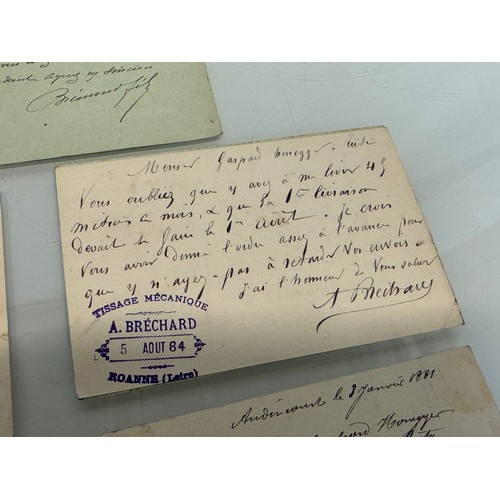 Brémond fils
Monsieur Gaspard Honegger à
Vous oubliez que y avez à me livrer 45
métiers ce mois, & que la 1re livraison
devait se faire le 1er août. Je crois
Vous avoir donné l'ordre assez à l'avance pour
que y n'ayez pas à retarder vos envois.
J'ai l'honneur de Vous saluer
A Bréchard
TISSAGE MÉCANIQUE
A. BRÉCHARD
5 AOUT 84
ROANNE (Loire)
Audincourt le 3 Janvier 1881
Honegger